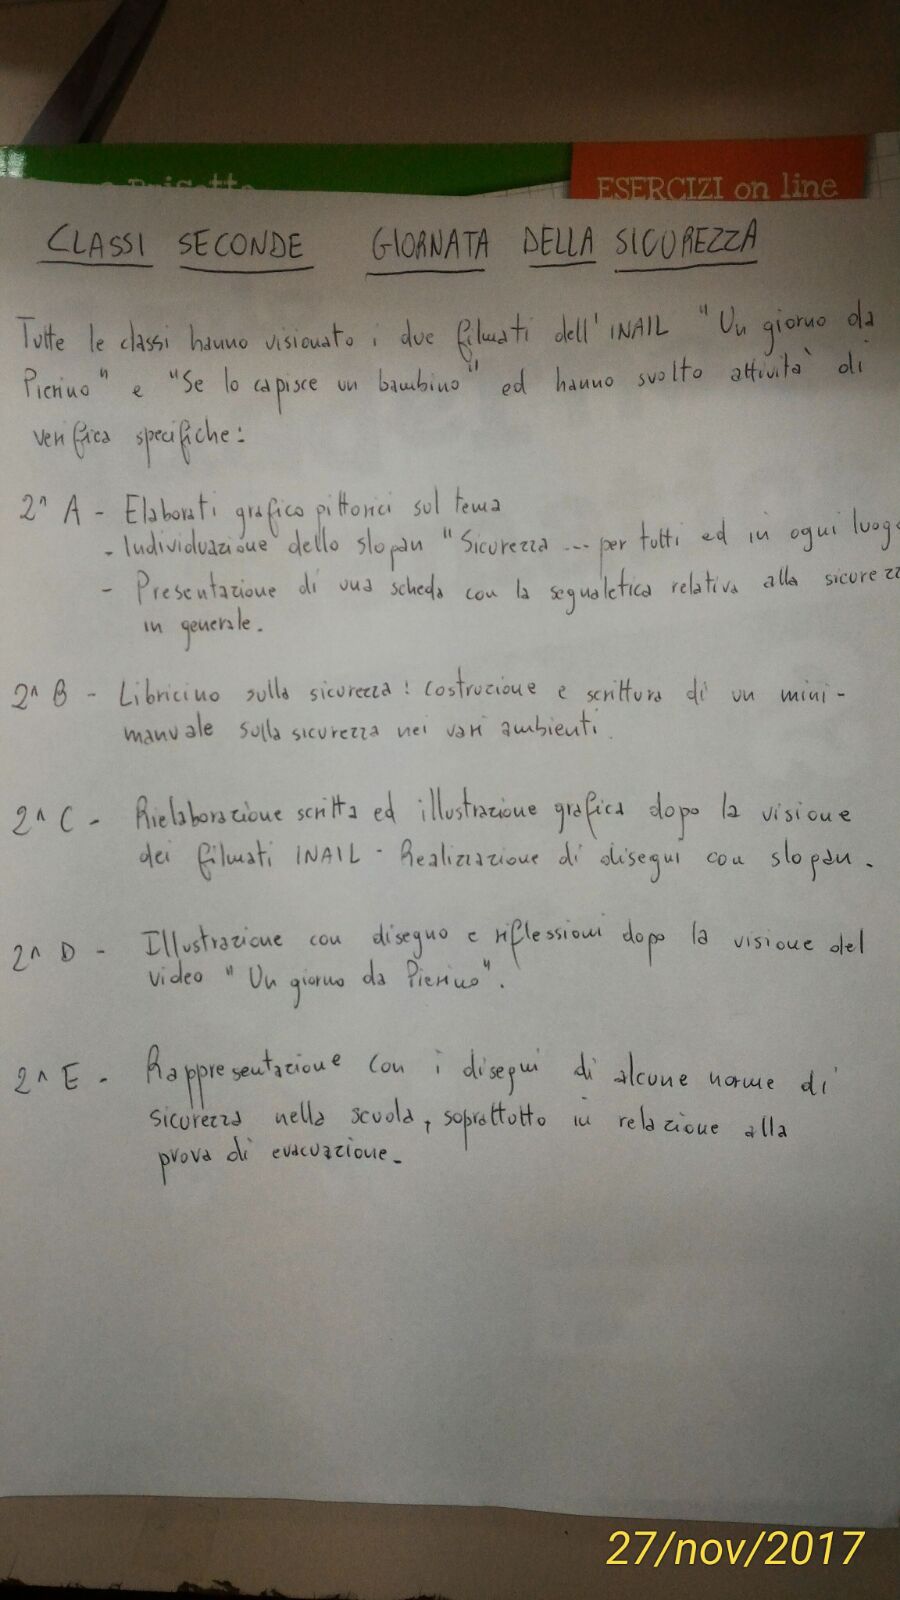 ESERCIZI on line
CLASSI SECONDE GIORNATA DELLA SICUREZZA
Tutte le classi hanno visionato i due filmati dell'INAIL "Un giorno da
Pierino" e "Se lo capisce un bambino" ed hanno svolto attività di
verifica specifiche:
2^ A - Elaborati grafico pittorici sul tema
- Individuazione dello slogan "Sicurezza ... per tutti ed in ogni luogo
- Presentazione di una scheda con la segnaletica relativa alla sicurezz
in generale.
2^ B - Libricino sulla sicurezza: costruzione e scrittura di un mini-
manuale sulla sicurezza nei vari ambienti.
2^ C - Rielaborazione scritta ed illustrazione grafica dopo la visione
dei filmati INAIL - Realizzazione di disegni con slogan.
2^ D - Illustrazione con disegno e riflessioni dopo la visione del
video "Un giorno da Pierino".
2^ E - Rappresentazione con i disegni di alcune norme di
sicurezza nella scuola, soprattutto in relazione alla
prova di evacuazione.
27/nov/2017